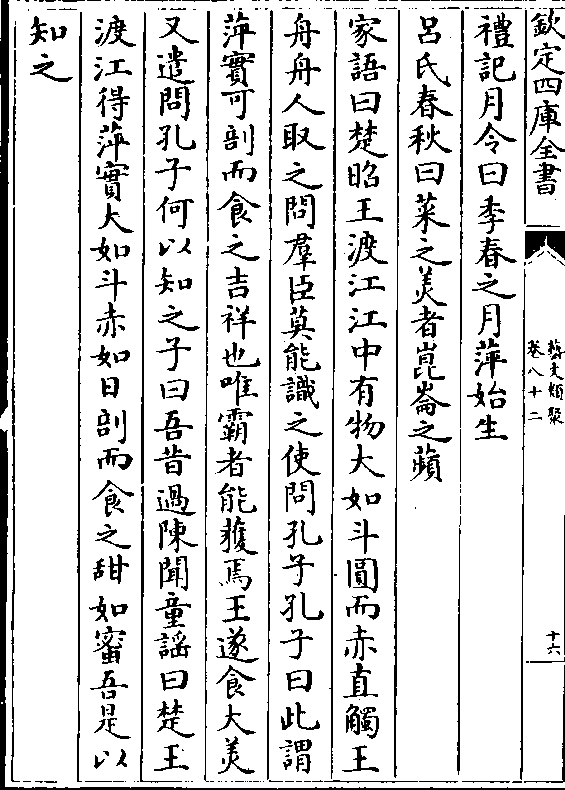 欽定四庫全書
藝文類聚
卷八十二
十六
禮記月令曰季春之月萍始生
呂氏春秋曰菜之美者崑崙之蘋
家語曰楚昭王渡江江中有物大如斗圓而赤直觸王
舟舟人取之問羣臣莫能識之使問孔子孔子曰此謂
萍實可剖而食之吉祥也唯霸者能獲焉王遂食大美
又遣問孔子何以知之子曰吾昔過陳聞童謡曰楚王
渡江得萍實大如斗赤如日剖而食之甜如蜜吾是以
知之